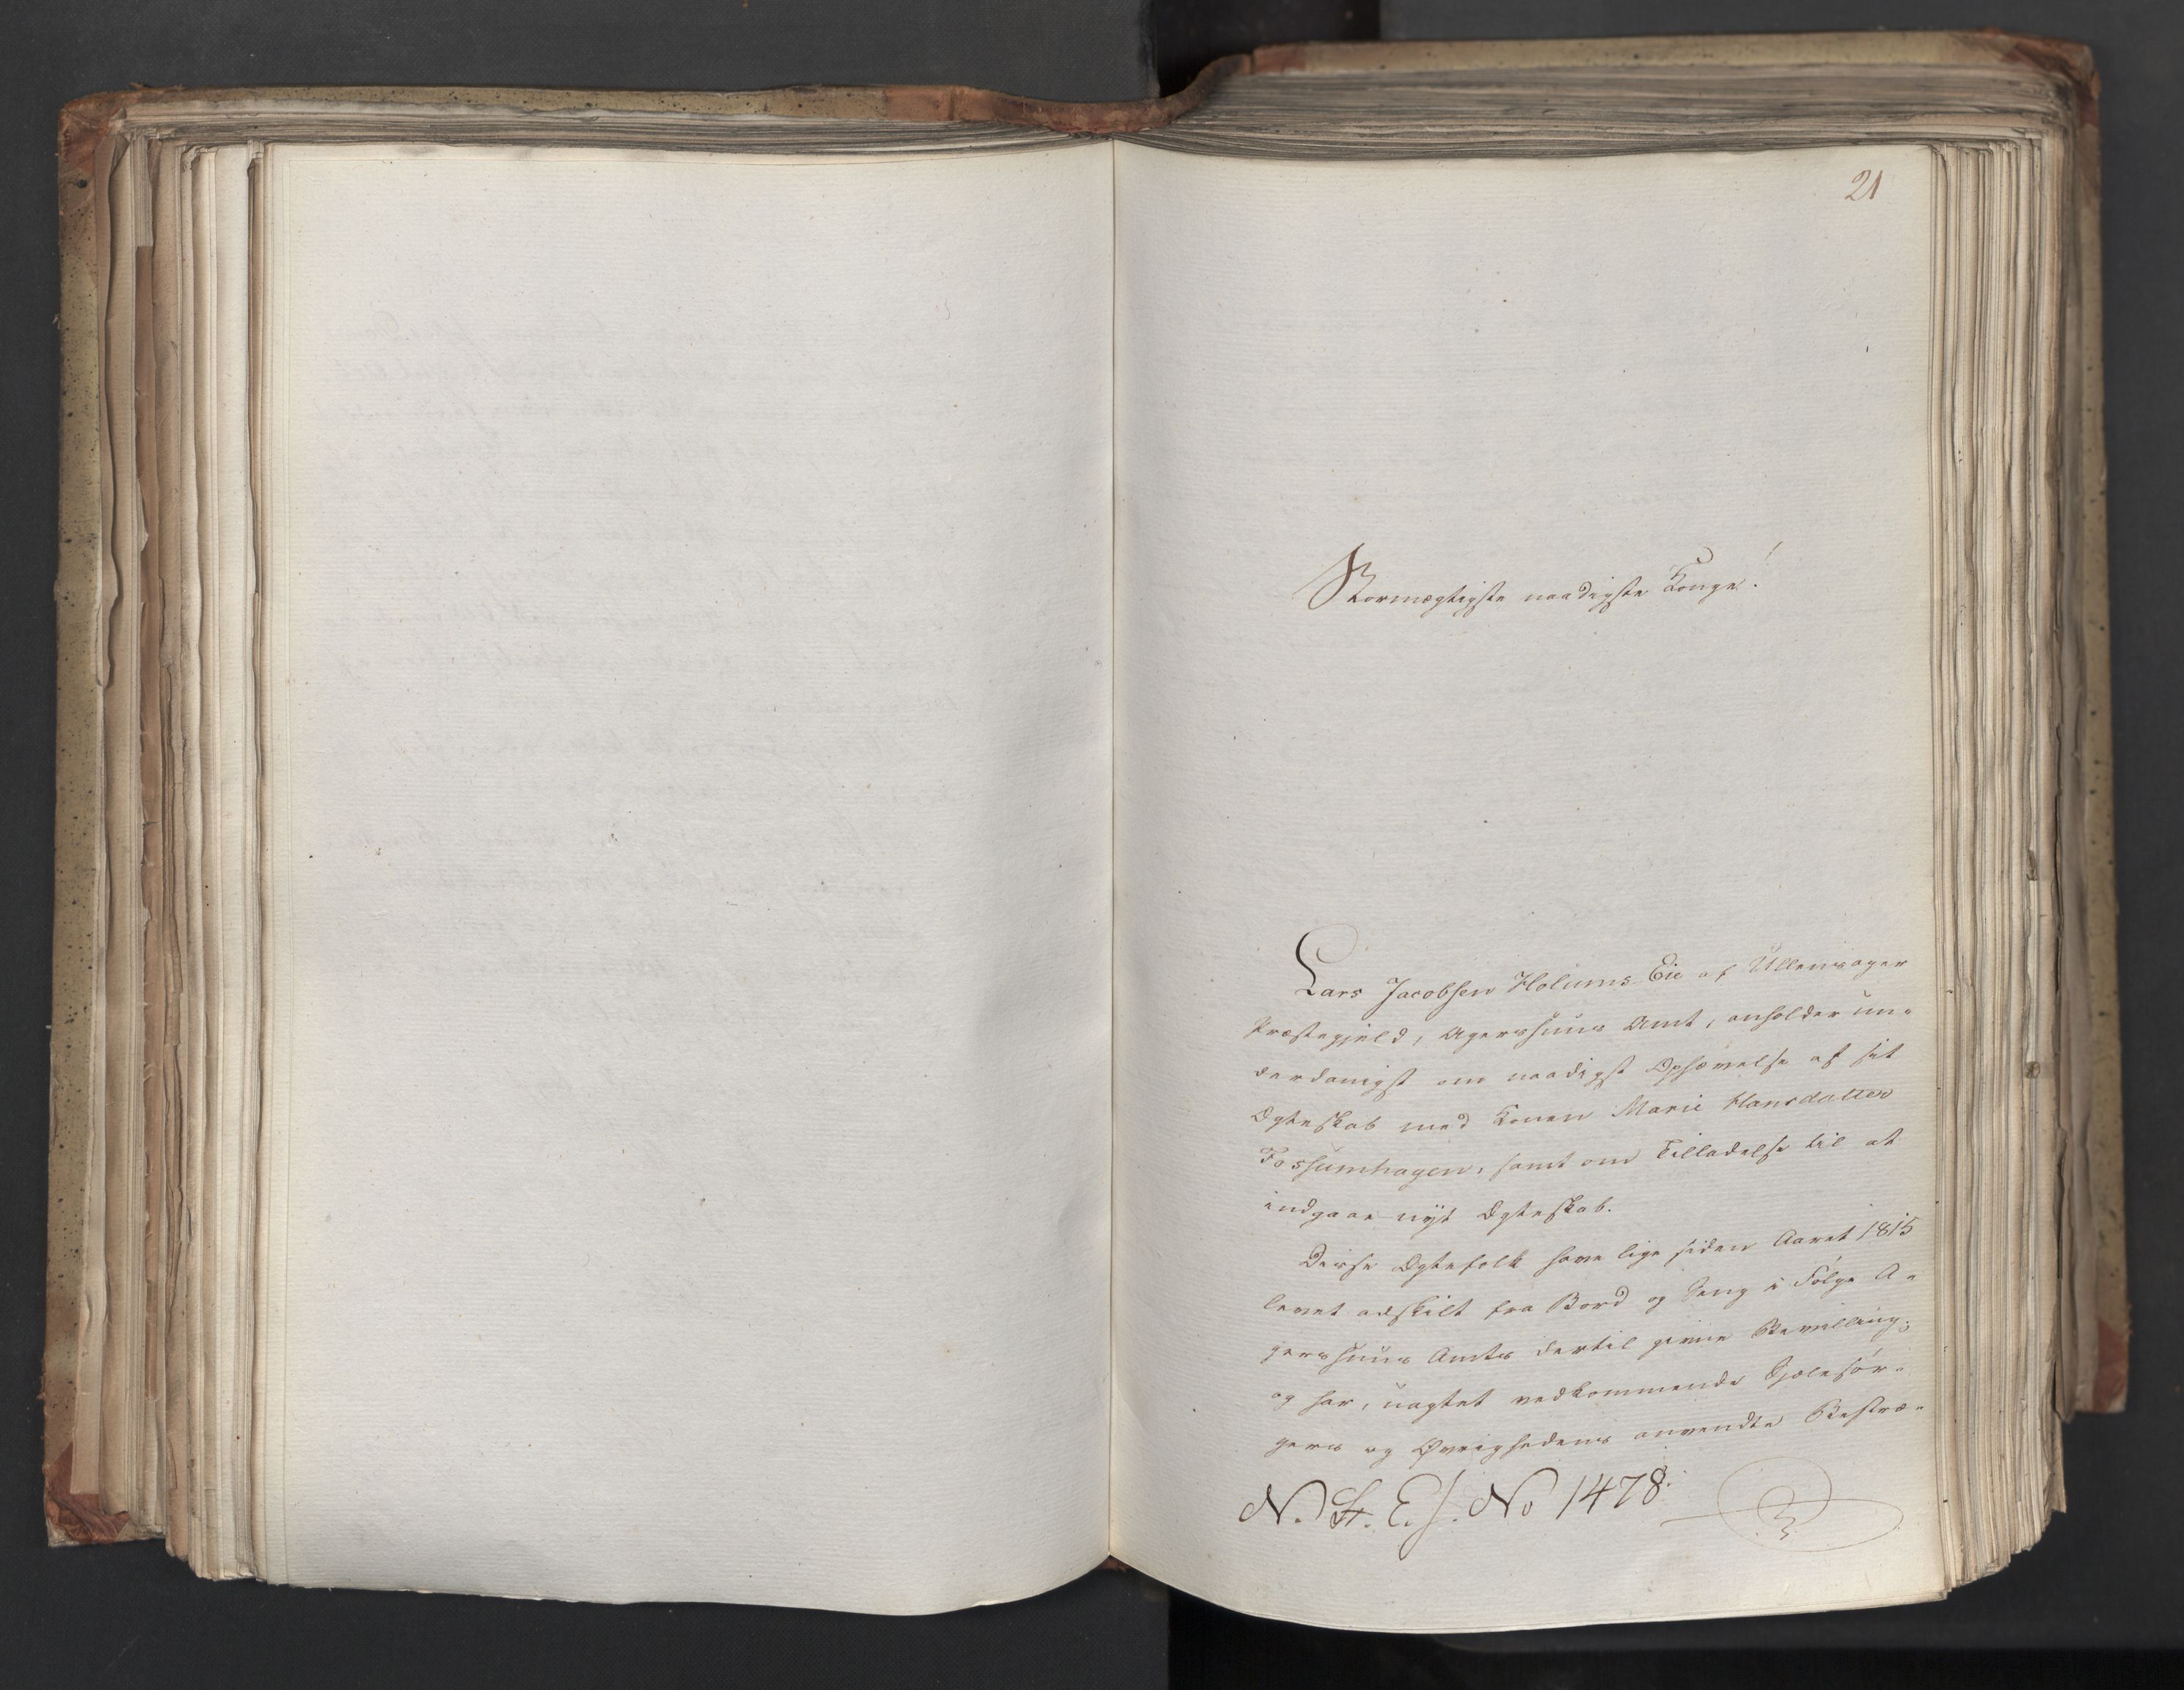 21
Stormægtigste naadigste Konge!
Lars Jacobsen Holums-Eie af Ullensager
Præstegjeld, Agershuus Amt, anholder un-
derdanigst om naadigst Ophævelse af sit
Ægteskab med Konen Marie Hansdatter
Fossumhagen, samt om Tilladelse til at
indgaae nyt Ægteskab.
Disse Ægtefolk have lige siden Aaret 1815
levet adskilt fra Bord og Seng i Følge A-
gershuus Amts dertil givne Bevilling;
og har, uagtet vedkommende Sjælesør-
gers og Øvrighedens anvendte Bestræ-
N. St. E. J. No 1478.